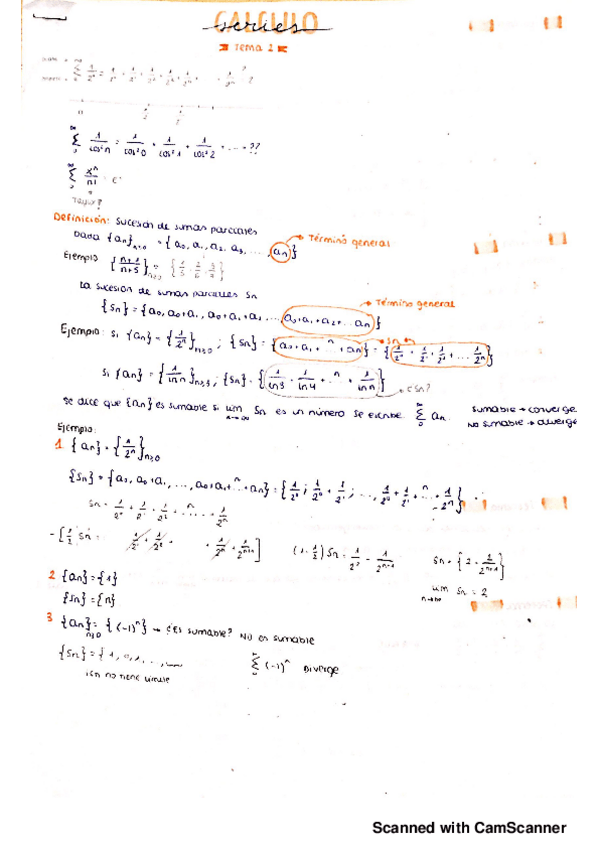 CALCULO
series
Tema 1
∞ Σ 0 1/2ⁿ = 1/2⁰ + 1/2¹ + 1/2² + 1/2³ + 1/2⁴ + ... 1/2ⁿ ?
∞ Σ 0 1/cos²n = 1/cos²0 + 1/cos²1 + 1/cos²2 + ... ??
∞ Σ 0 xⁿ/n! = eˣ
Taylor?
Definición: Sucesión de sumas parciales
Dada {an}n≥0 = {a0, a1, a2, a3, ..., an} → Término general
Ejemplo {n+1/n+5}n≥0 = {1/5, 2/6, 3/7}
La sucesión de sumas parciales Sn
{Sn} = {a0, a0+a1, a0+a1+a2, ... a0+a1+a2+...an} → Término general
Ejemplo: si {an} = {1/2ⁿ}n≥0 ; {Sn} = {a0+a1+ n +an} = {1/2⁰ + 1/2¹ + 1/2² + ... 1/2ⁿ}
si {an} = {1/ln n}n≥3 ; {Sn} = {1/ln3 + 1/ln4 + n + 1/ln n} → ¿Sn?
Se dice que {an} es sumable si lim n→∞ Sn es un número se escribe ∞ Σ 0 an. sumable → converge
no sumable → diverge
Ejemplo:
1 {an} = {1/2ⁿ}n≥0
{Sn} = {a0, a0+a1, ..., a0+a1+ n +an} = {1/2⁰ ; 1/2⁰ + 1/2¹ ; ..., 1/2⁰ + 1/2¹ + n + 1/2ⁿ}
Sn = 1/2⁰ + 1/2¹ + 1/2² + n ... + 1/2ⁿ
- [1/2 Sn = 1/2¹ + 1/2² + + 1/2ⁿ + 1/2ⁿ⁺¹] (1 - 1/2) Sn = 1/2⁰ - 1/2ⁿ⁺¹ Sn = {2 - 2/2ⁿ⁺¹}
lim n→∞ Sn = 2
2 {an} = {1}
{Sn} = {n}
3 {an}n≥0 = {(-1)ⁿ} → ¿es sumable? No es sumable
{Sn} = {1, 0, 1, ..., ∞ Σ 0 (-1)ⁿ Diverge
¡Sn no tiene límite
Scanned with CamScanner